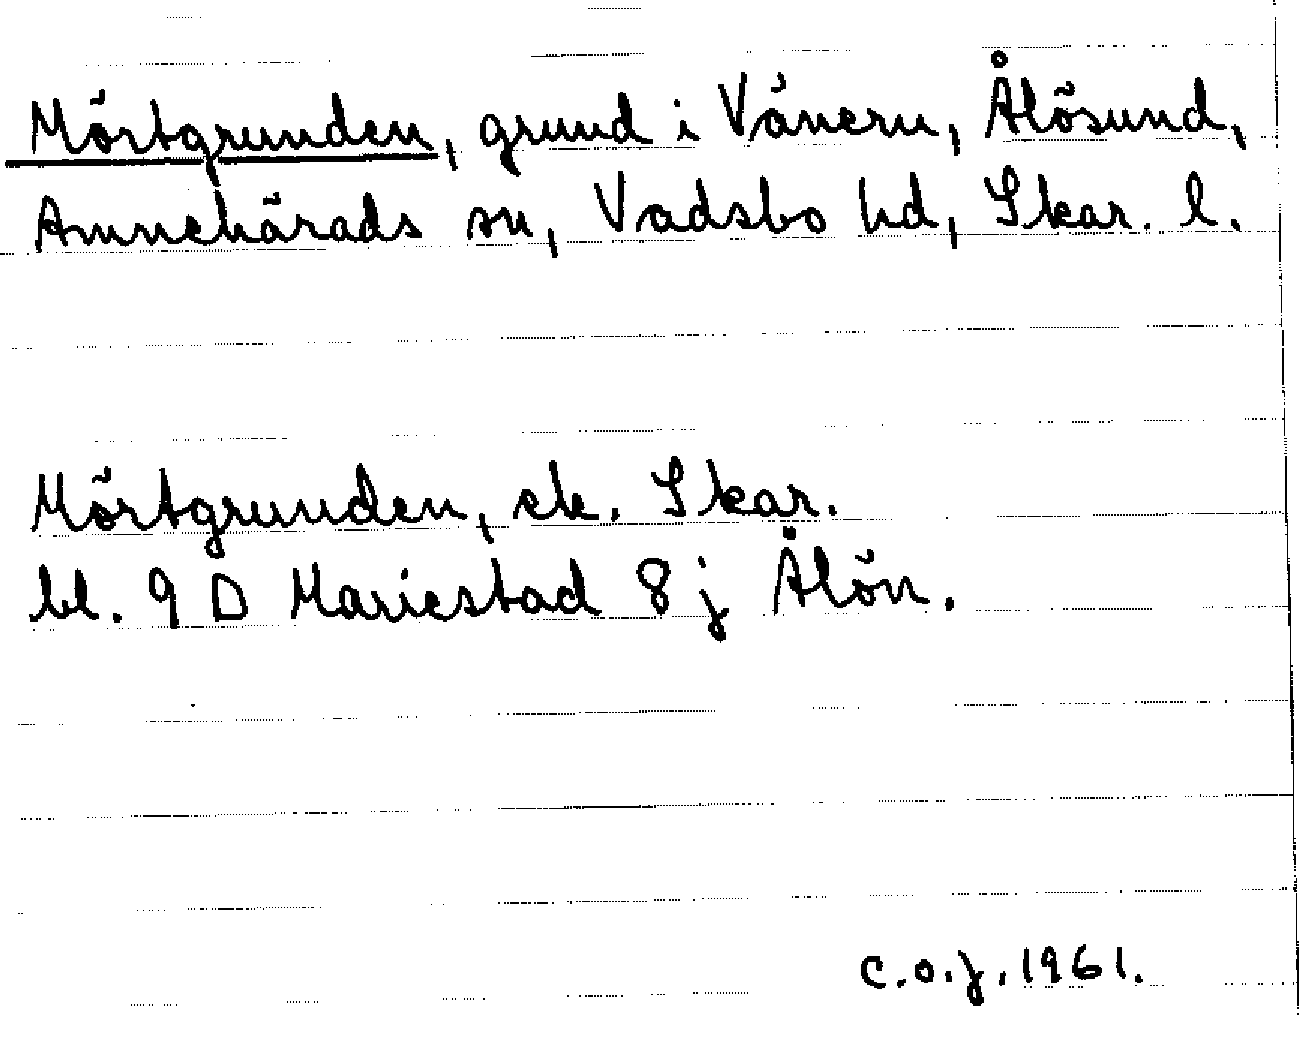 Mörtgrunden, grund i Vänern, Ålösund,
Amnehärads sn, Vadsbo hd, Skar. l.
Mörtgrunden, ek. Skar.
bl. 9 D Mariestad 8 j Ålön.
C.O.J. 1961.